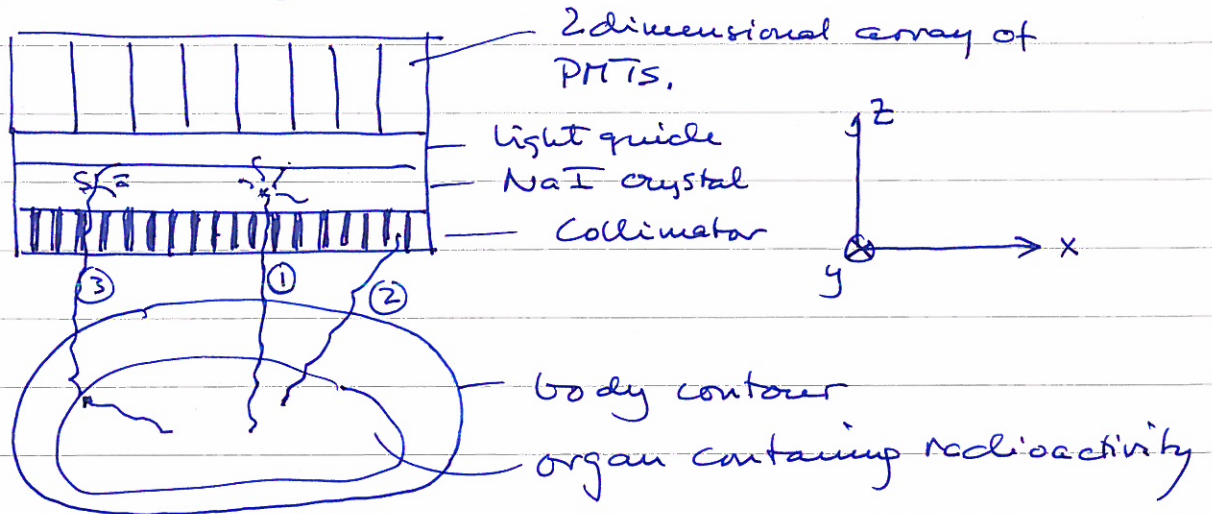 2 dimensional array of
PMTs.
light guide
NaI crystal
Collimator
z
x
y
③
①
②
body contour
organ containing radioactivity